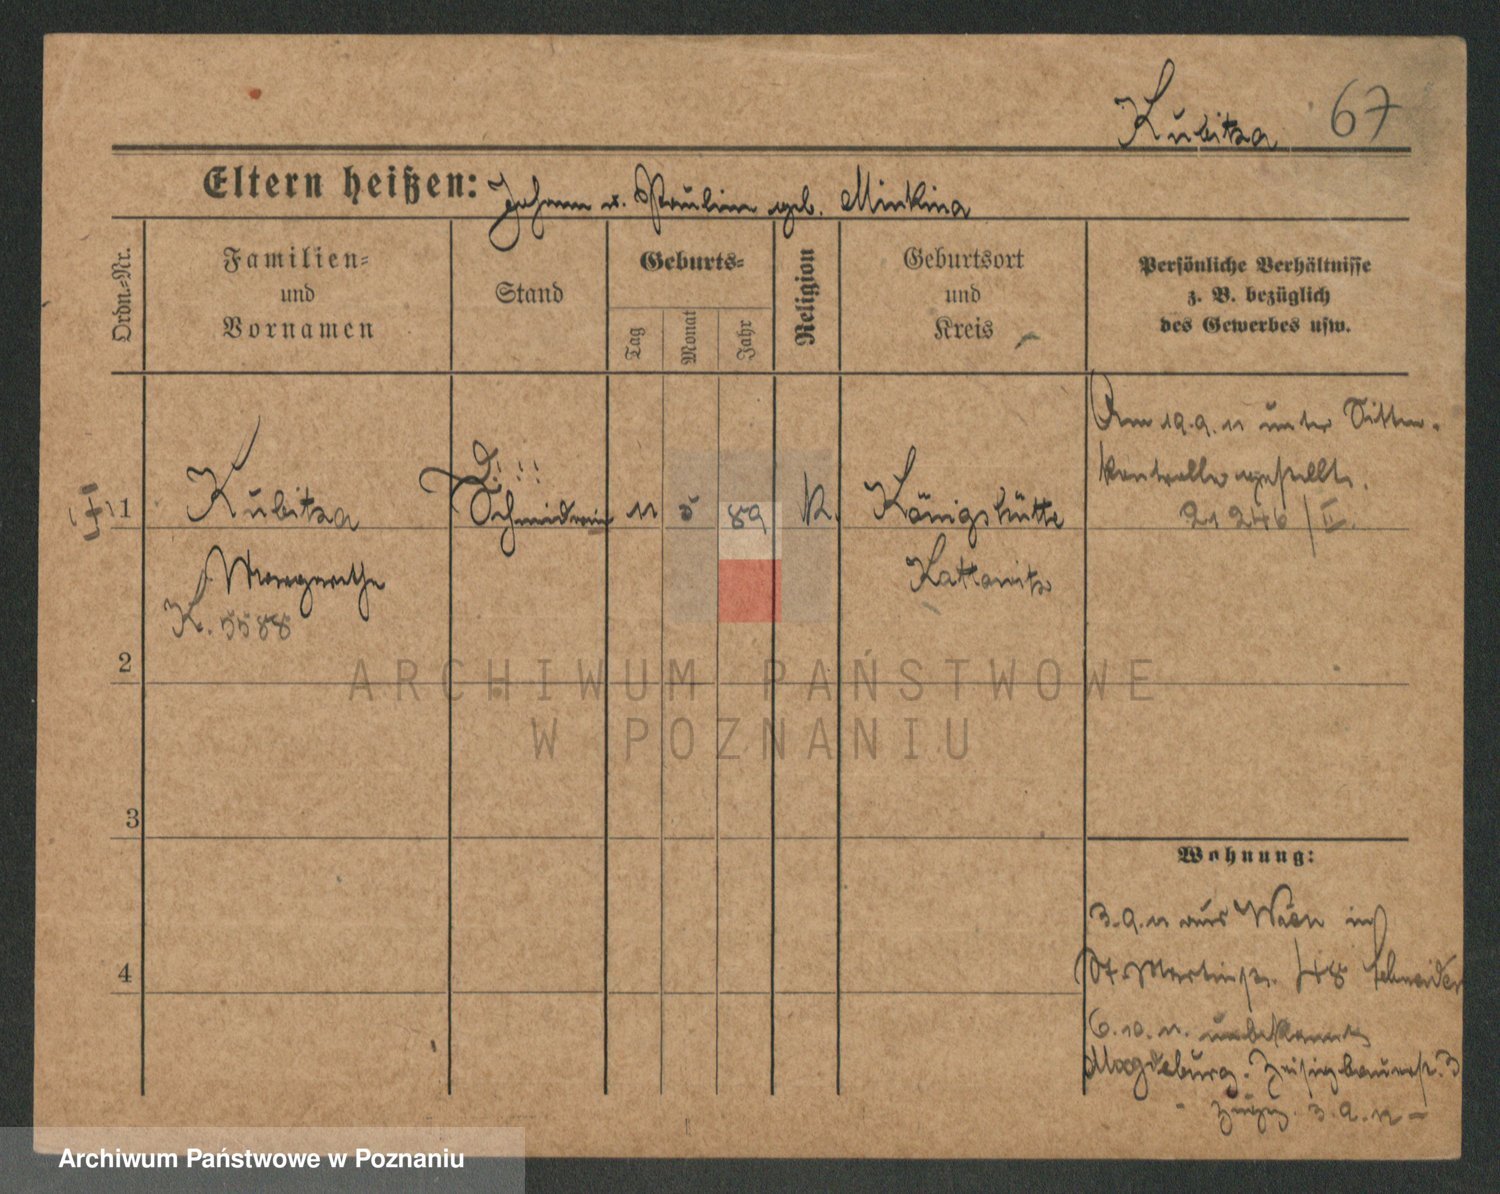 Kubitza 67
Eltern heißen: Johann u. Paulina geb. Minkina
Ordn.-Nr.
Familien-
und
Vornamen
Stand
Geburts-
Tag
Monat
Jahr
Religion
Geburtsort
und
Kreis
Persönliche Verhältnisse
z. B. bezüglich
des Gewerbes usw.
1
Kubitza
Margarethe
K. 5588
Schneiderin
11
5
89
K.
Königshütte
Kattowitz
Am 19.9.11 unter Sitten-
kontrolle gestellt.
21246/II.
2
3
4
Wohnung:
3.9.11 aus Wien
St. Martinstr. 48 Schneider
6.10.11. unbekannt
Magdeburg. 3
3.9.12
ARCHIWUM PAŃSTWOWE
W POZNANIU
Archiwum Państwowe w Poznaniu